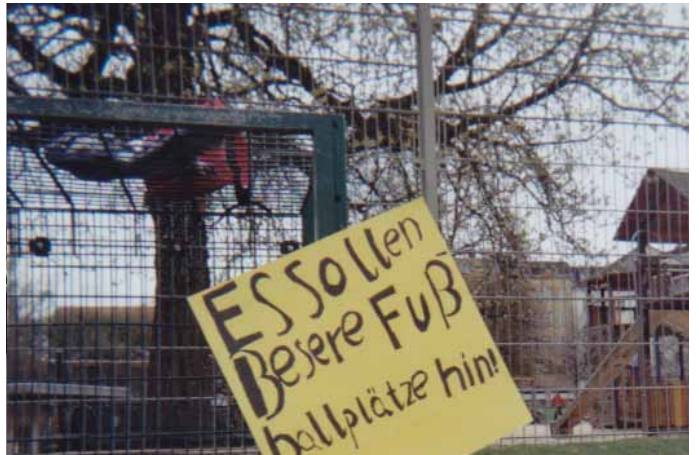 ES Sollen
Besere Fuß
ballplätze hin!